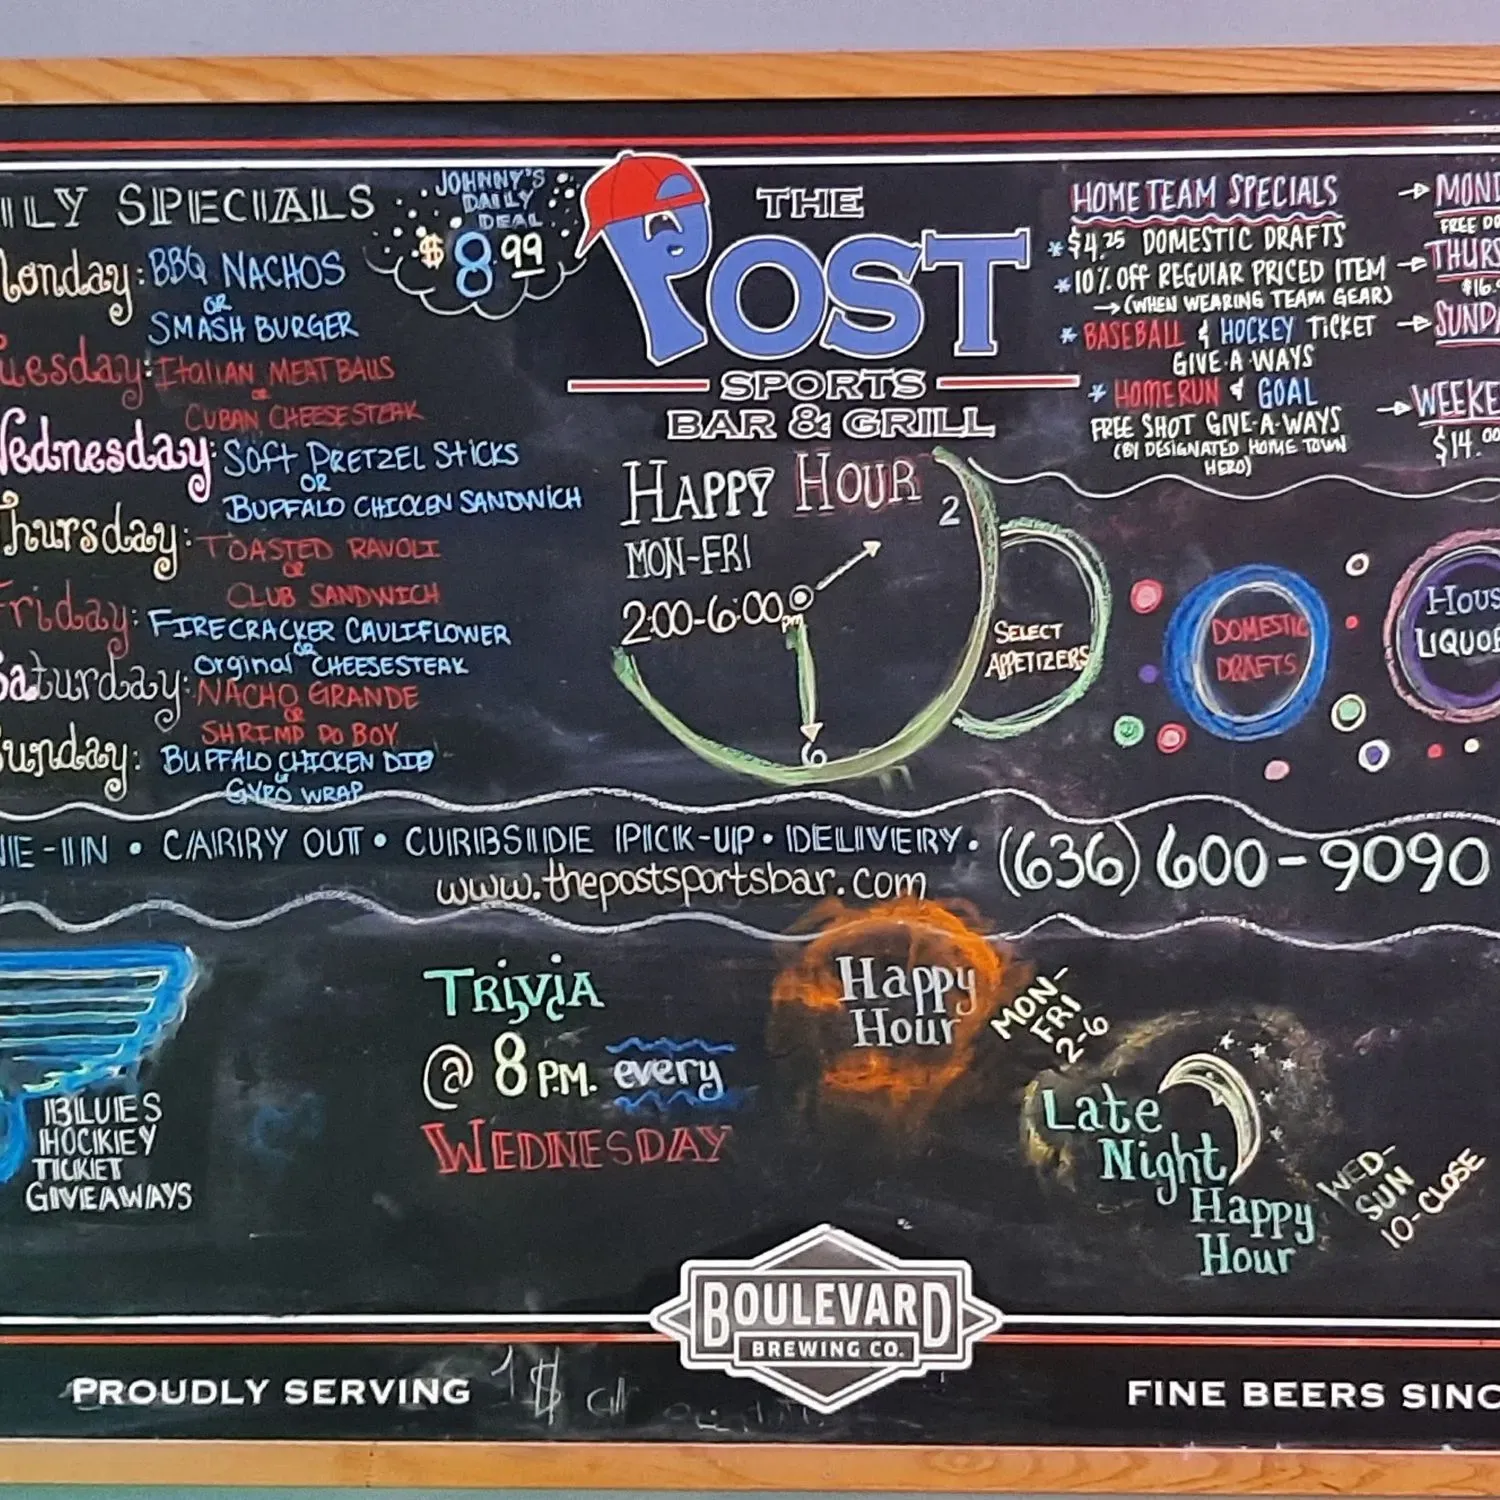 ILY SPECIALS
JOHNNY'S
DAILY
DEAL
$8.99
Monday: BBQ NACHOS
OR
SMASH BURGER
Tuesday: ITALIAN MEATBALLS
OR
CUBAN CHEESESTEAK
Wednesday: SOFT PRETZEL STICKS
OR
BUFFALO CHICKEN SANDWICH
Thursday: TOASTED RAVOLI
OR
CLUB SANDWICH
Friday: FIRECRACKER CAULIFLOWER
OR
ORGINAL CHEESESTEAK
Saturday: NACHO GRANDE
OR
SHRIMP PO BOY
Sunday: BUFFALO CHICKEN DIP
or
GYRO WRAP
THE
POST
SPORTS
BAR & GRILL
HAPPY HOUR
MON-FRI
2:00-6:00pm
2
6
SELECT
APPETIZERS
HOME TEAM SPECIALS
* $4.25 DOMESTIC DRAFTS
* 10% OFF REGULAR PRICED ITEM
→ (WHEN WEARING TEAM GEAR)
* BASEBALL & HOCKEY TICKET
GIVE-A-WAYS
* HOMERUN & GOAL
FREE SHOT GIVE-A-WAYS
(BY DESIGNATED HOME TOWN
HERO)
→ MOND
FREE DO
→ THURS
$16.
→ SUNDA
→ WEEKE
$14.00
DOMESTIC
DRAFTS
HOUS
LIQUO
NE-IN • CARRY OUT • CURBSIDE PICK-UP • DELIVERY • (636) 600-9090
www.thepostsportsbar.com
BLUES
HOCKEY
TICKET
GIVEAWAYS
TRIVIA
@ 8 P.M. every
WEDNESDAY
Happy
Hour
MON-
FRI
2-6
Late
Night
Happy
Hour
WED-
SUN
10-CLOSE
BOULEVARD
BREWING CO.
PROUDLY SERVING
1$
FINE BEERS SINC